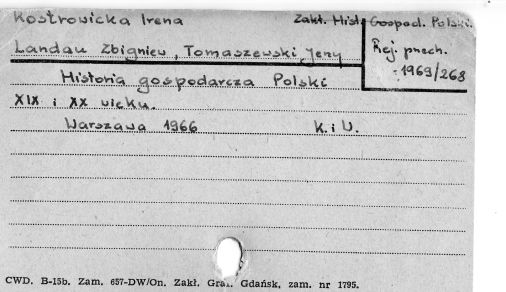 Kostrowicka Irena
Zakł. Hist. Gospod. Polski.
Landau Zbigniew, Tomaszewski Jerzy
Rej. przech.
1969/268
Historia gospodarcza Polski
XIX i XX wieku.
Warszawa 1966 K. i W.
CWD. B-15b. Zam. 657-DW/On. Zakł. Graf. Gdańsk, zam. nr 1795.